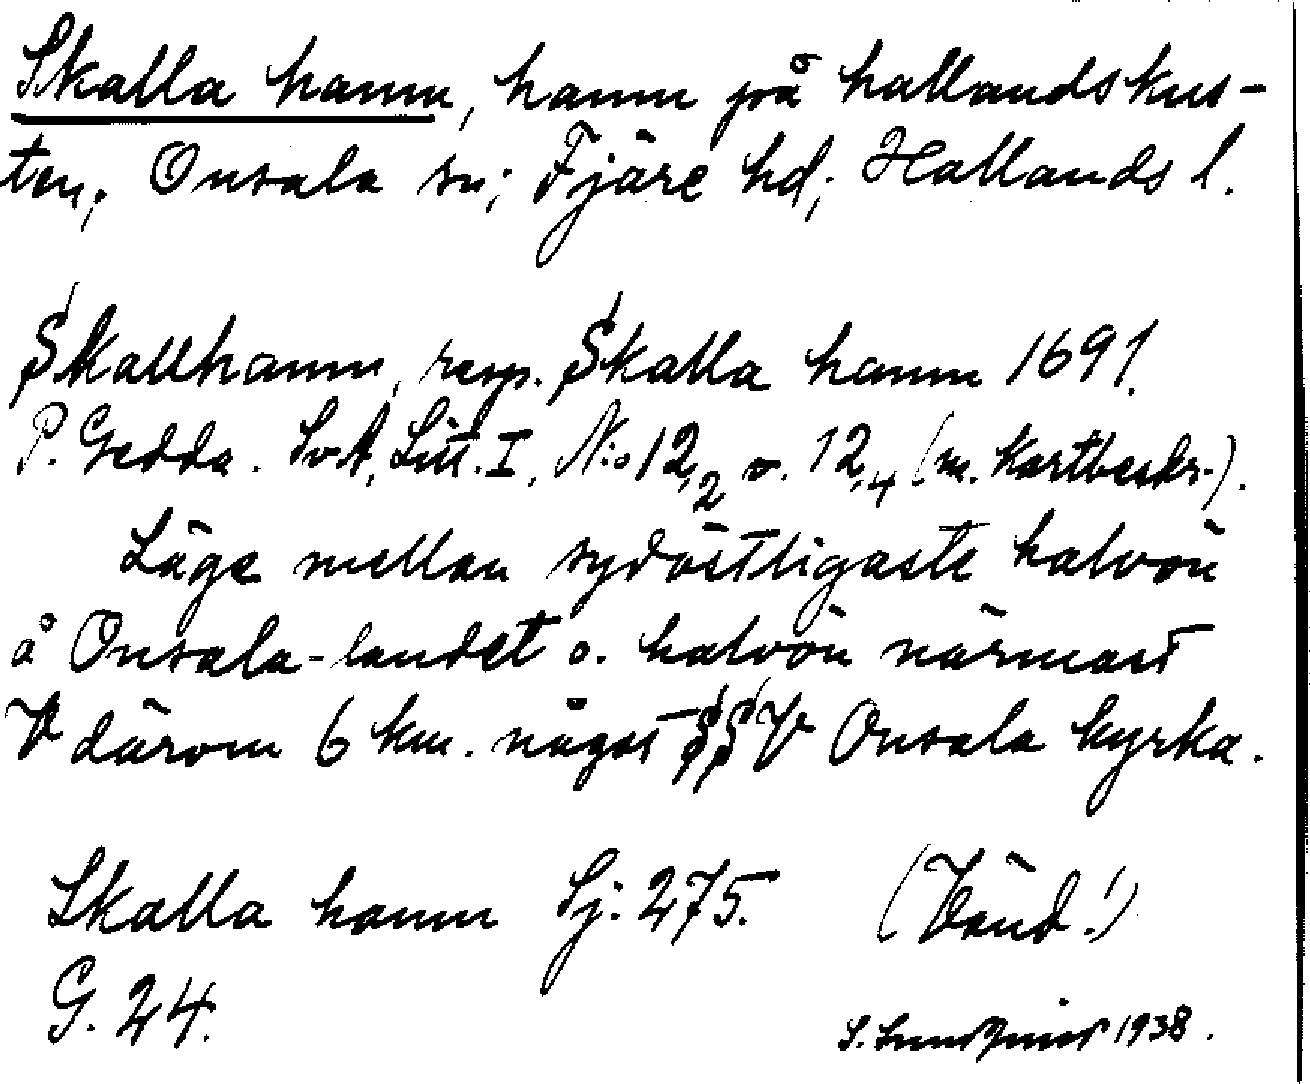 Skalla hamn, hamn på hallandskus-
ten; Onsala sn; Fjäre hd; Hallands l.
Skallhamn, resp. Skalla hamn 1691.
P. Gedda. SvA, Litt. I, N:o 12,2 o. 12,4 (m. kartbeskr.).
Läge mellan sydöstligaste halvön
å Onsala-landet o. halvön närmast
V därom 6 km. något SSV Onsala kyrka.
Skalla hamn Sj: 275. (Vänd!)
G. 24.
S. Lundquist 1938.